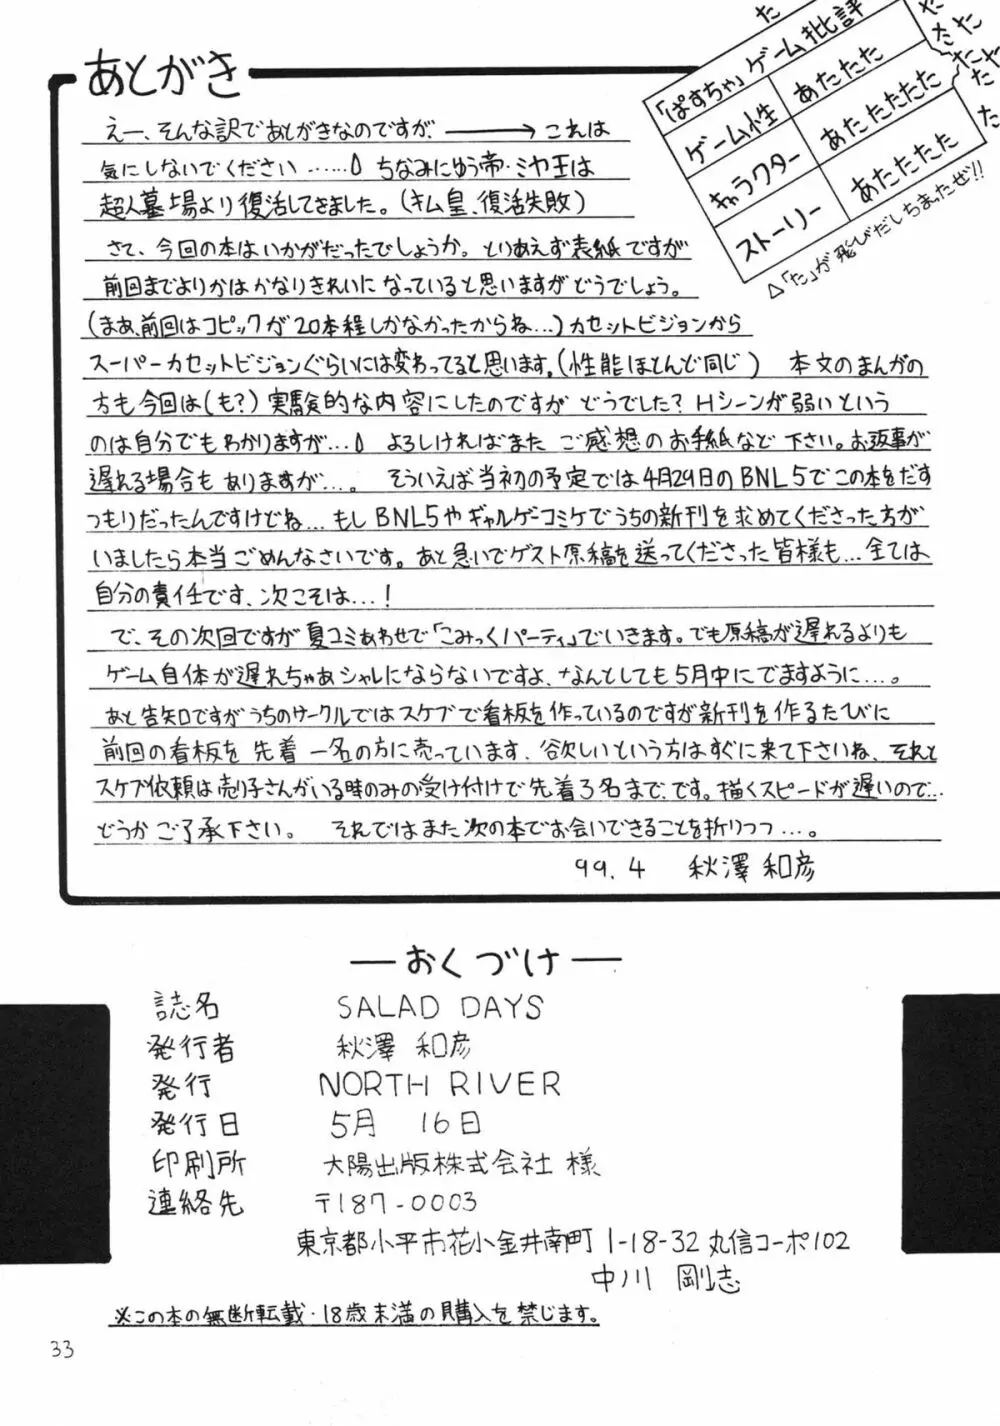 あとがき
「ぱすちゃ」ゲーム批評
ゲーム性 あたたた
キャラクター あたたたたた
ストーリー あたたたた
た
た
た
た
た
た
た
た
△「た」が飛びだしちまったぜ!!
えー、そんな訳であとがきなのですが、―――→これは
気にしないでください……💧 ちなみにゆう帝・ミヤ王は
超人墓場より復活してきました。(キム皇、復活失敗)
さて、今回の本はいかがだったでしょうか。とりあえず表紙ですが
前回までよりかはかなりきれいになっていると思いますがどうでしょう。
(まあ、前回はコピックが20本程しかなかったからね…)カセットビジョンから
スーパーカセットビジョンぐらいには変わってると思います。(性能ほとんど同じ) 本文のまんがの
方も今回は(も?)実験的な内容にしたのですがどうでした?Hシーンが弱いという
のは自分でもわかりますが…💧 よろしければまたご感想のお手紙など下さい。お返事が
遅れる場合もありますが…。 そういえば当初の予定では4月29日のBNL5でこの本をだす
つもりだったんですけどね…もしBNL5やギャルゲーコミケでうちの新刊を求めてくださった方が
いましたら本当ごめんなさいです。あと急いでゲスト原稿を送ってくださった皆様も…全ては
自分の責任です、次こそは…!
で、その次回ですが夏コミあわせで「こみっくパーティ」でいきます。でも原稿が遅れるよりも
ゲーム自体が遅れちゃあシャレにならないですよ、なんとしても5月中にでますように…。
あと告知ですがうちのサークルではスケブで看板を作っているのですが新刊を作るたびに
前回の看板を先着一名の方に売っています、欲しいという方はすぐに来て下さいね、それと
スケブ依頼は売り子さんがいる時のみの受け付けで先着3名まで、です。描くスピードが遅いので…
どうかご了承下さい。 それではまた次の本でお会いできることを祈りつつ…。
99.4 秋澤 和彦
―おくづけ―
誌名 SALAD DAYS
発行者 秋澤 和彦
発行 NORTH RIVER
発行日 5月 16日
印刷所 大陽出版株式会社 様
連絡先 〒187-0003
東京都小平市花小金井南町1-18-32 丸信コーポ102
中川 剛志
※この本の無断転載・18歳未満の購入を禁じます。
33